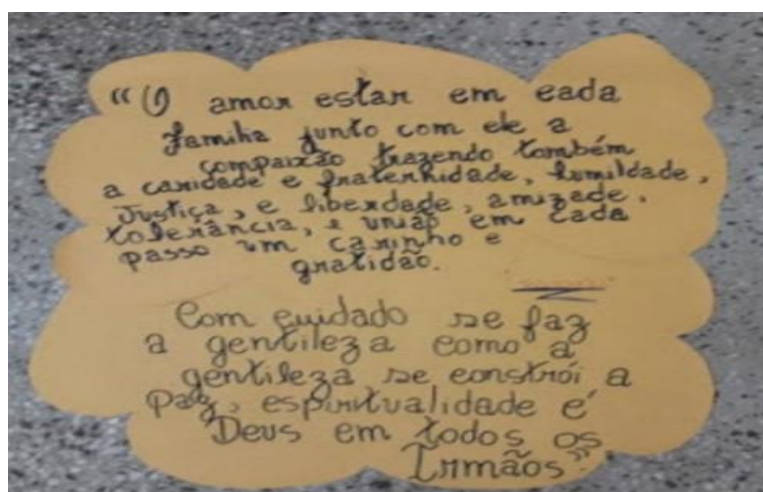 "O amor estar em cada
familia junto com ele a
compaixão trazendo também
a caridade e fraternidade, humildade,
Justiça, e liberdade, amizade,
tolerância, e união em cada
passo um carinho e
gratidão.
Com cuidado se faz
a gentileza como a
gentileza se constrói a
paz, espiritualidade é
Deus em todos os
Irmãos".